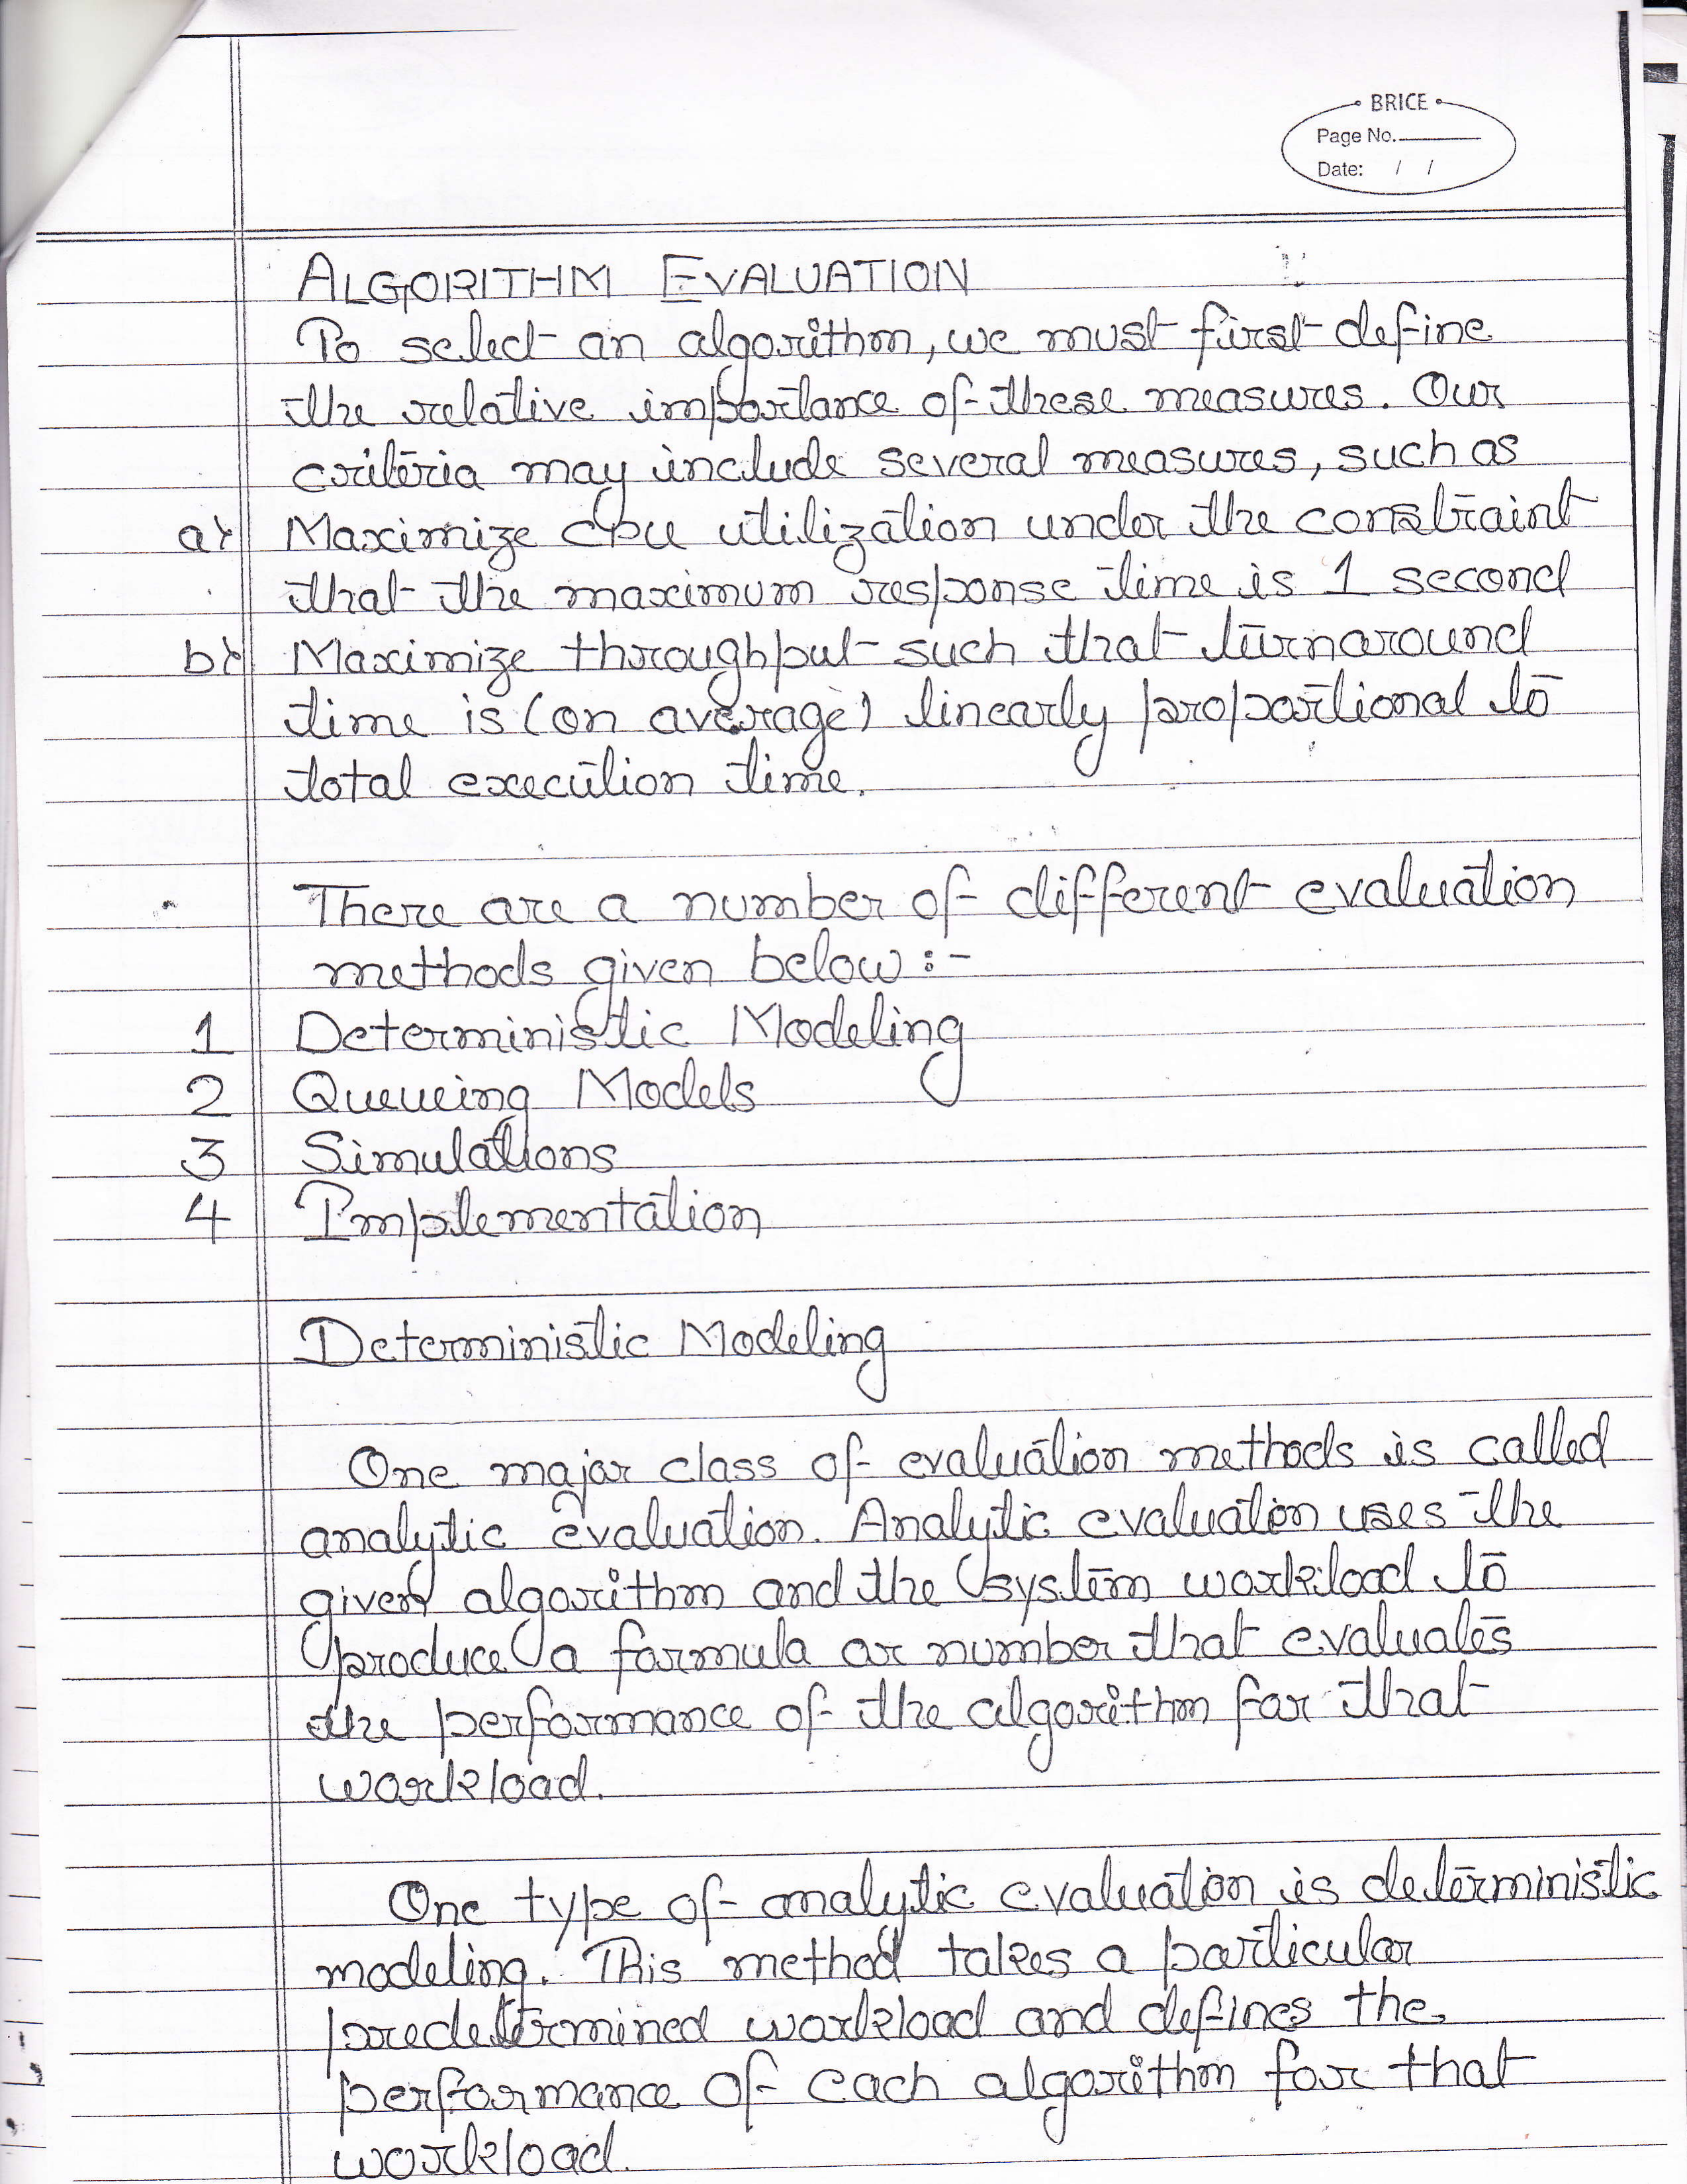 BRICE
Page No.
Date: / /
ALGORITHM EVALUATION
To select an algorithm, we must first define
the relative importance of these measures. Our
criteria may include several measures, such as
a) Maximize cpu utilization under the constraint
that the maximum response time is 1 second
b) Maximize throughput such that turnaround
time is (on average) linearly proportional to
total execution time.
There are a number of different evaluation
methods given below :-
1 Deterministic Modeling
2 Queueing Models
3 Simulations
4 Implementation
Deterministic Modeling
One major class of evaluation methods is called
analytic evaluation. Analytic evaluation uses the
given algorithm and the system workload to
produce a formula or number that evaluates
the performance of the algorithm for that
workload.
One type of analytic evaluation is deterministic
modeling. This method takes a particular
predetermined workload and defines the
performance of each algorithm for that
workload.